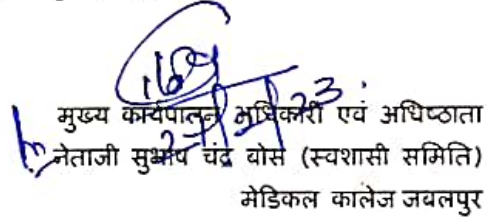 मुख्य कार्यपालन अधिकारी एवं अधिष्ठाता
नेताजी सुभाष चंद्र बोस (स्वशासी समिति)
मेडिकल कालेज जबलपुर